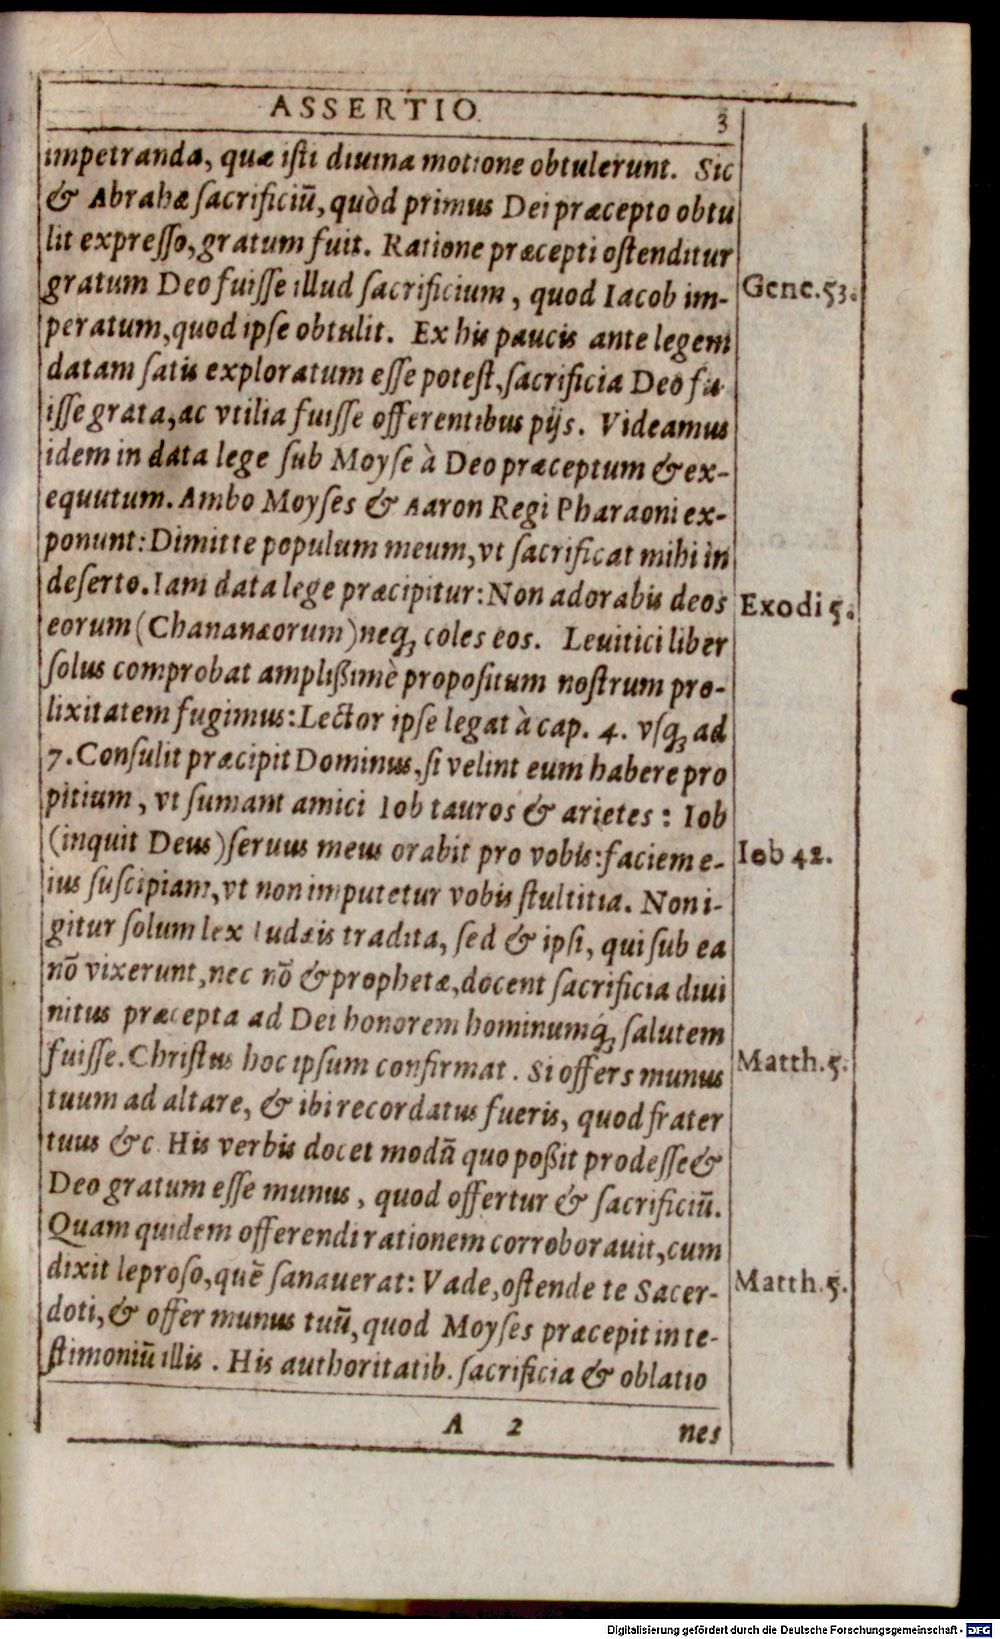 ASSERTIO. 3
impetranda, quæ isti diuina motione obtulerunt. Sic
& Abrahæ sacrificiū, quòd primus Dei præcepto obtu
lit expresso, gratum fuit. Ratione præcepti ostenditur
gratum Deo fuisse illud sacrificium, quod Iacob im-
Gene. 53.
peratum, quod ipse obtulit. Ex his paucis ante legem
datam satis exploratum esse potest, sacrificia Deo fu
isse grata, ac vtilia fuisse offerentibus pijs. Videamus
idem in data lege sub Moyse à Deo præceptum & ex-
equutum. Ambo Moyses & Aaron Regi Pharaoni ex-
ponunt: Dimitte populum meum, vt sacrificat mihi in
deserto. Iam data lege præcipitur: Non adorabis deos
Exodi 5.
eorum (Chananæorum) neq; coles eos. Leuitici liber
solus comprobat amplißimè propositum nostrum pro-
lixitatem fugimus: Lector ipse legat à cap. 4. vsq; ad
7. Consulit præcipit Dominus, si velint eum habere pro
pitium, vt sumant amici Iob tauros & arietes: Iob
(inquit Deus) seruus meus orabit pro vobis: faciem e-
Iob 42.
ius suscipiam, vt non imputetur vobis stultitia. Non i-
gitur solum lex Iudæis tradita, sed & ipsi, qui sub ea
nō vixerunt, nec nō & prophetæ, docent sacrificia diui
nitus præcepta ad Dei honorem hominumq́; salutem
fuisse. Christus hoc ipsum confirmat. Si offers munus
Matth. 5.
tuum ad altare, & ibi recordatus fueris, quod frater
tuus &c. His verbis docet modū quo poßit prodesse &
Deo gratum esse munus, quod offertur & sacrificiū.
Quam quidem offerendi rationem corroborauit, cum
dixit leproso, quē sanauerat: Vade, ostende te Sacer-
Matth. 5.
doti, & offer munus tuū, quod Moyses præcepit in te-
stimoniū illis. His authoritatib. sacrificia & oblatio
A 2 nes
Digitalisierung gefördert durch die Deutsche Forschungsgemeinschaft - DFG